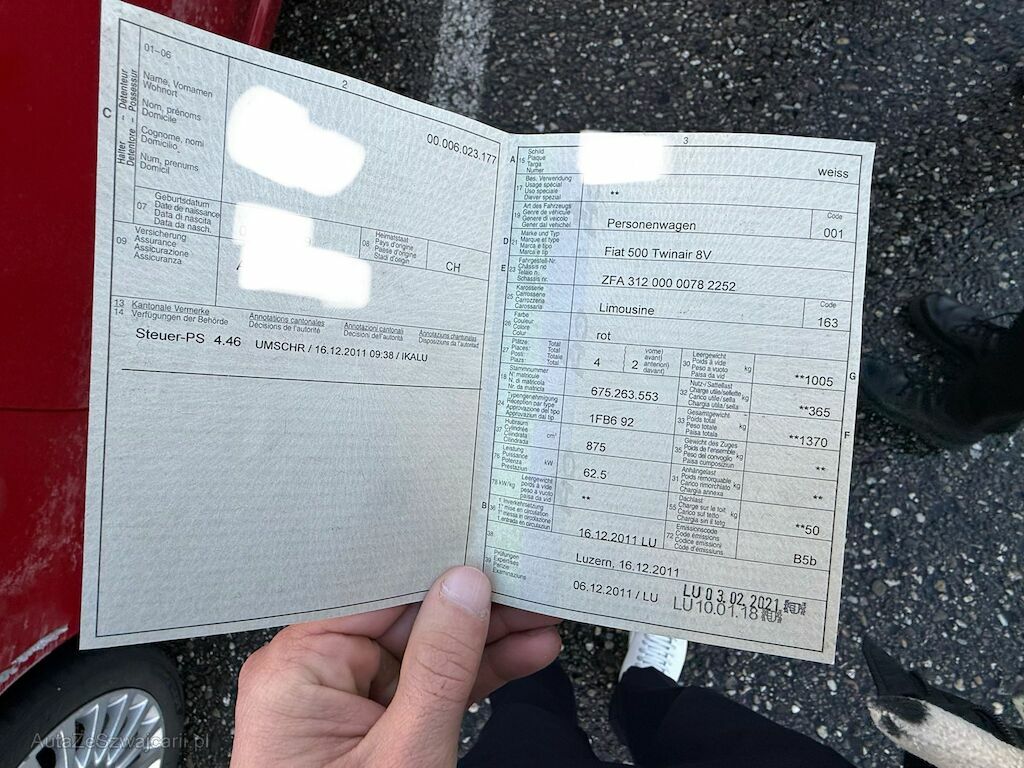 01–06
2
C
Halter – Detenteur
Detentore – Possessur
Name, Vornamen
Wohnort
Nom, prénoms
Domicile
Cognome, nomi
Domicilio
Num, prenums
Domicil
00.006.023.177
07
Geburtsdatum
Date de naissance
Data di nascita
Data da nasch.
08
Heimatstaat
Pays d'origine
Paese d'origine
Stadi d'origin
CH
09
Versicherung
Assurance
Assicurazione
Assicuranza
A
13
14
Kantonale Vermerke
Verfügungen der Behörde
Annotations cantonales
Décisions de l'autorité
Annotazioni cantonali
Decisioni dell'autorità
Annotaziuns chantunalas
Disposiziuns da l'autoritad
Steuer-PS 4.46 UMSCHR / 16.12.2011 09:38 / IKALU
3
A 15
Schild
Plaque
Targa
Numer
weiss
17
Bes. Verwendung
Usage spécial
Uso speciale
Diever spezial
**
19
Art des Fahrzeugs
Genre de véhicule
Genere di veicolo
Gener dal vehichel
Personenwagen
Code
001
D 21
Marke und Typ
Marque et type
Marca e tipo
Marca e tip
Fiat 500 Twinair 8V
E 23
Fahrgestell-Nr.
Châssis no
Telaio n.
Schassis nr.
ZFA 312 000 0078 2252
25
Karosserie
Carrosserie
Carrozzeria
Carossaria
Limousine
Code
163
26
Farbe
Couleur
Colore
Colur
rot
27
Plätze: Total
Places: Total
Posti: Totale
Plazs: Total
4
2
vorne)
avant)
anteriori)
davant)
30
Leergewicht
Poids à vide
Peso a vuoto
Paisa da vid
kg
**1005
G
18
Stammnummer
N° matricule
N. di matricola
Nr. da matricla
675.263.553
32
Nutz-/Sattellast
Charge utile/sellette
Carico utile/sella
Chargia utila/sella
kg
**365
24
Typengenehmigung
Réception par type
Approvazione del tipo
Approvaziun dal tip
1FB6 92
33
Gesamtgewicht
Poids total
Peso totale
Paisa totala
kg
**1370
F
37
Hubraum
Cylindrée
Cilindrata
Cilindrada
cm³
875
35
Gewicht des Zuges
Poids de l'ensemble
Peso del convoglio
Paisa cumposiziun
kg
**
76
Leistung
Puissance
Potenza
Prestaziun
kW
62.5
31
Anhängelast
Poids remorquable
Carico rimorchiato
Chargia annexa
kg
**
78 kW/kg
Leergewicht
poids à vide
peso a vuoto
paisa da vid
**
55
Dachlast
Charge sur le toit
Carico sul tetto
Chargia sin il tetg
kg
**50
B 36
1. Inverkehrsetzung
1re mise en circulation
1a messa in circolazione
1. entrada en circulaziun
16.12.2011 LU
72
Emissionscode
Code émissions
Codice emissioni
Code d'emissiuns
B5b
38
Luzern, 16.12.2011
39
Prüfungen
Expertises
Perizie
Examinaziuns
06.12.2011 / LU
LU 03.02.2021
LU 10.01.18
AutaZeSzwajcarii.pl